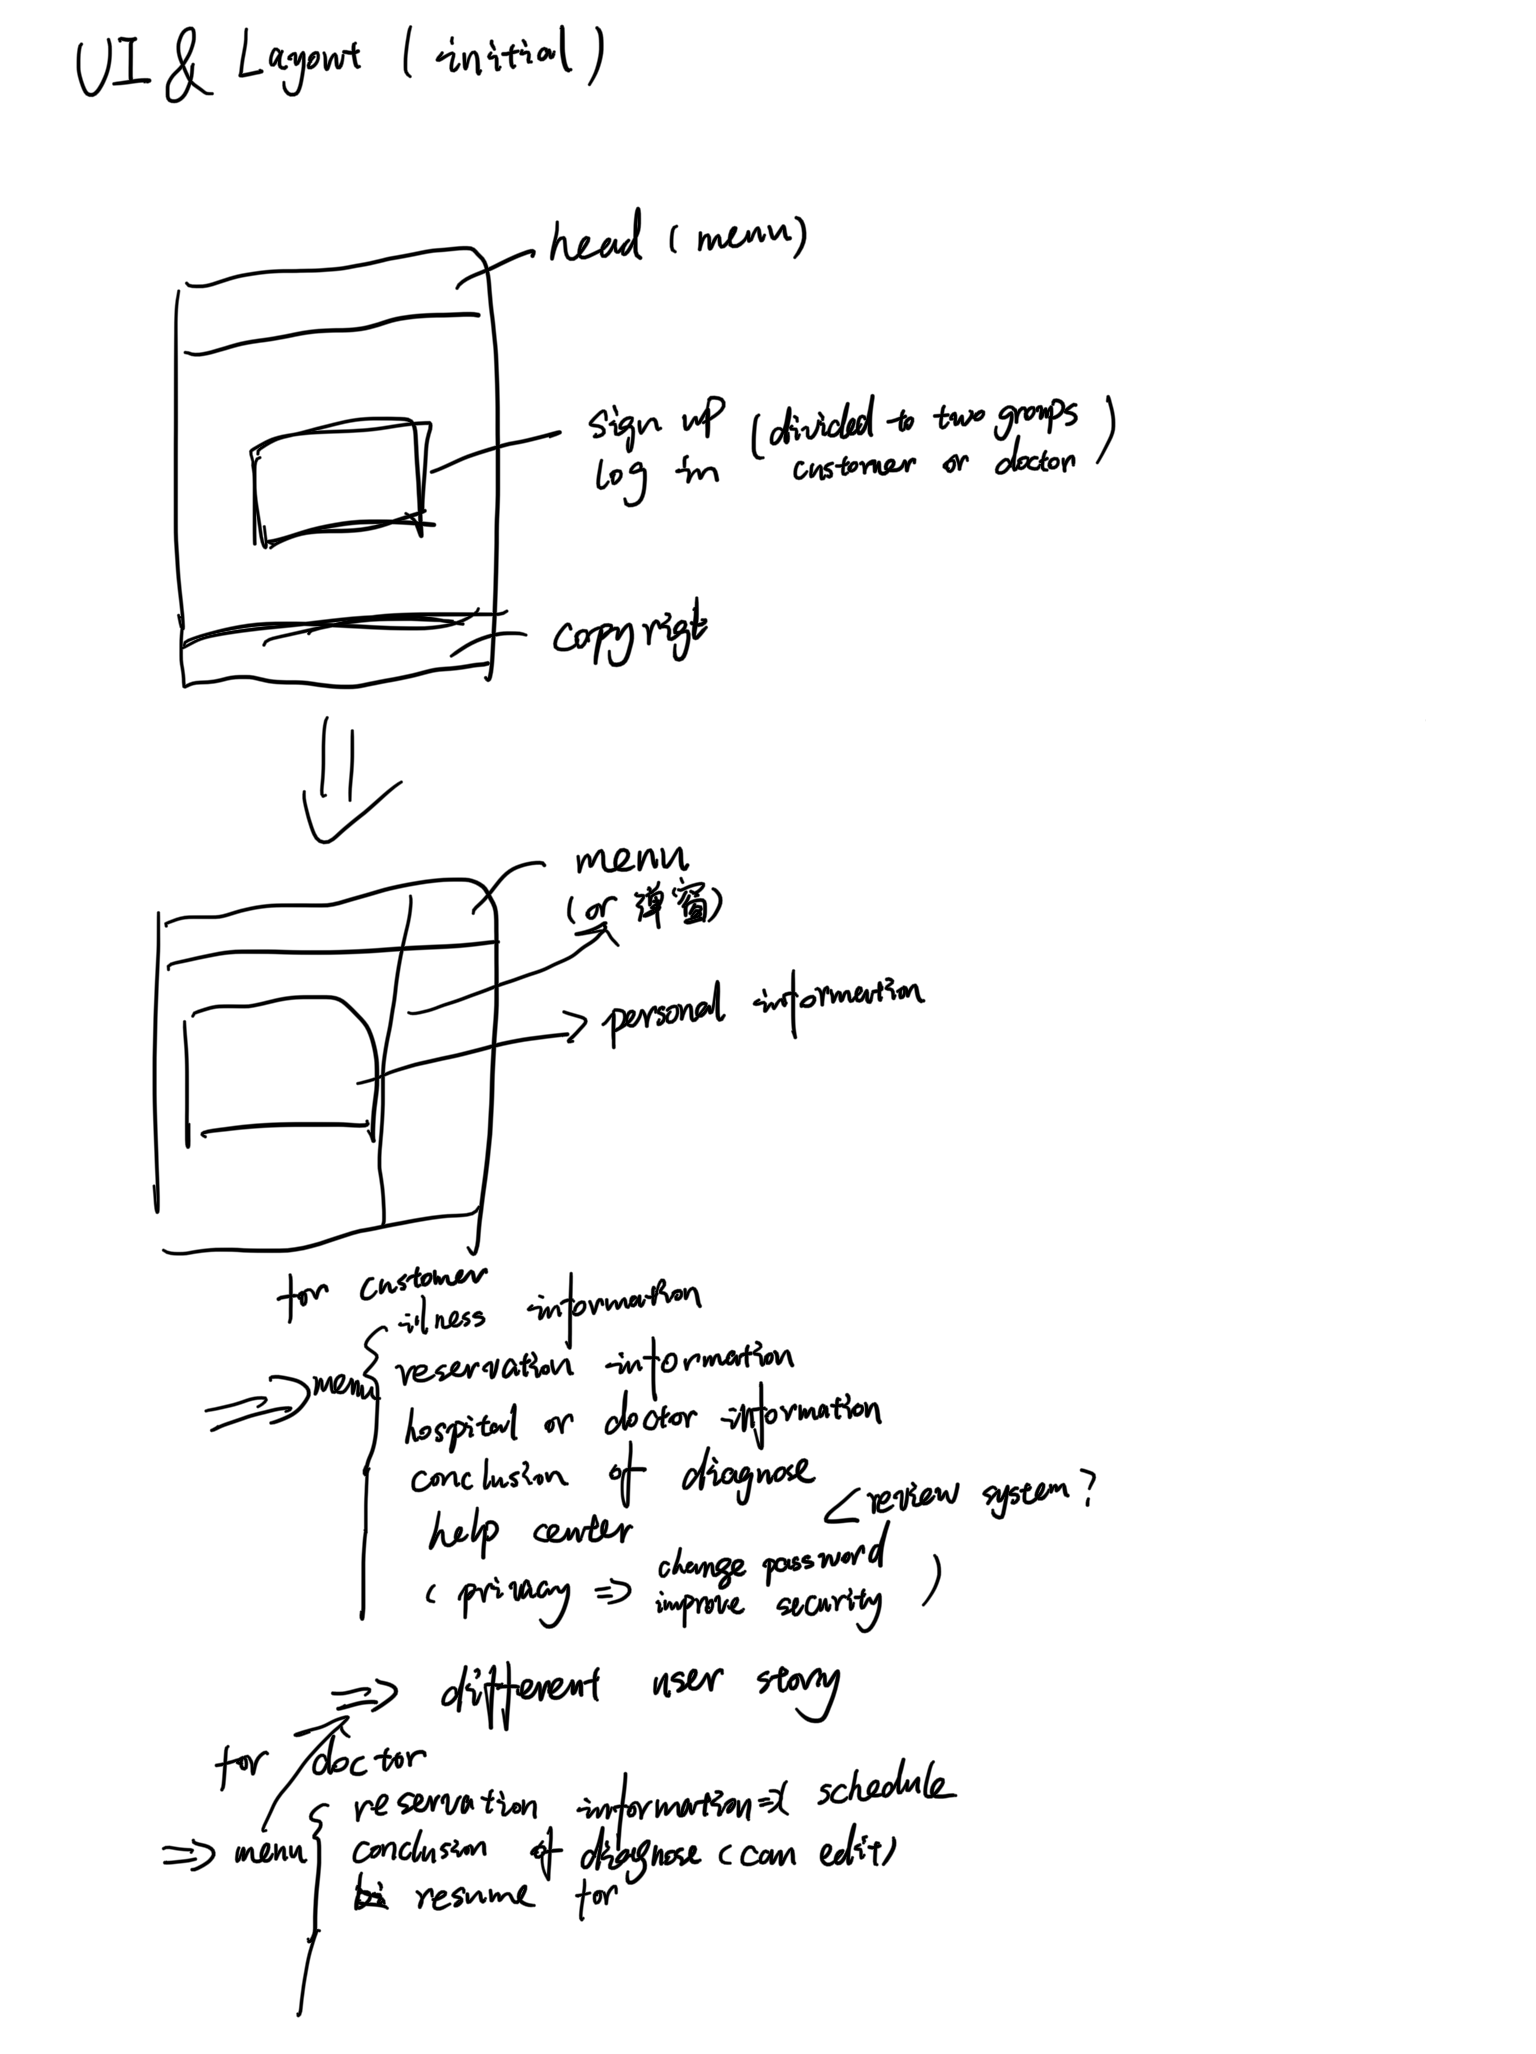 UI & Layout (initial)
head (menu)
sign up
log in
(divided to two groups
customer or doctor)
copyrigt
menu
(or 弹窗)
personal information
for customer
menu
illness information
reservation information
hospital or doctor information
conclusion of diagnose
<review system?
help center
(privacy => change password
improve security)
=> different user story
for doctor
=> menu
reservation information => schedule
conclusion of diagnose (can edit)
resume for